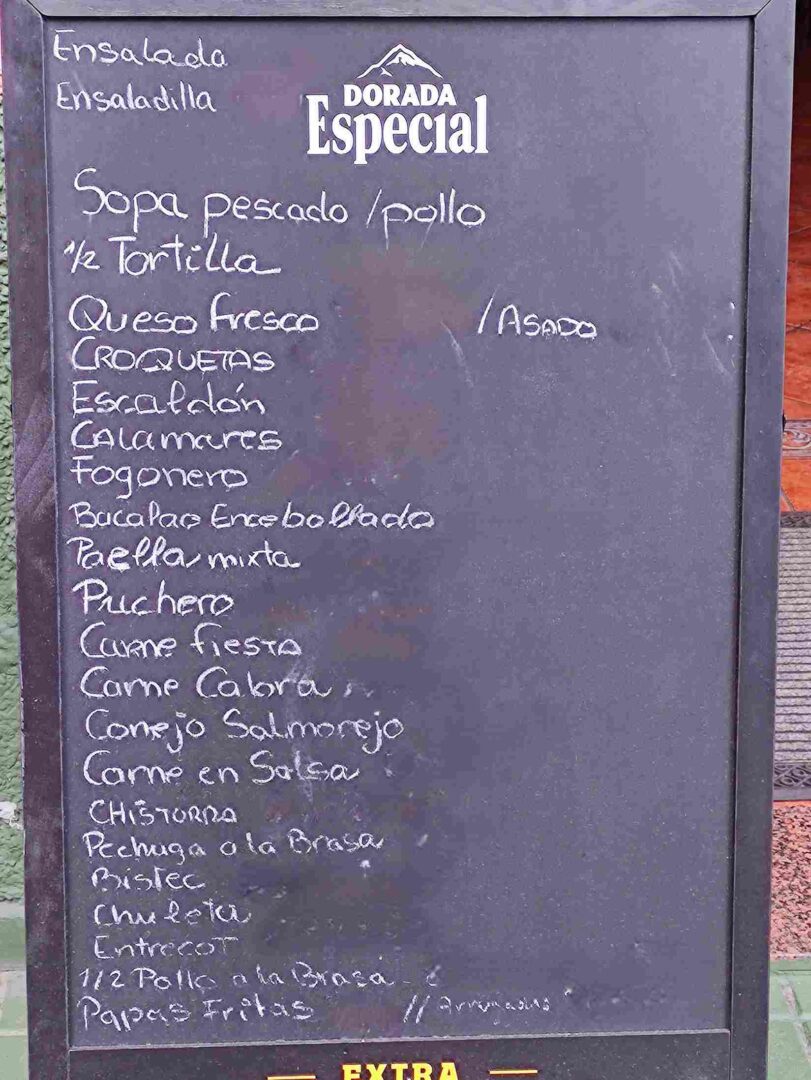 Ensalada
Ensaladilla
DORADA
Especial
Sopa pescado /pollo
1/2 Tortilla
Queso fresco /ASADO
CROQUETAS
Escaldón
CALamares
Fogonero
Bacalao Encebollado
Paella mixta
Puchero
Carne fiesta
Carne Cabra
Conejo Salmorejo
Carne en Salsa
CHISTORRA
Pechuga a la Brasa
Bistec
Chuleta
EntrecoT
1/2 Pollo a la Brasa
Papas Fritas // Arrugadas
EXTRA